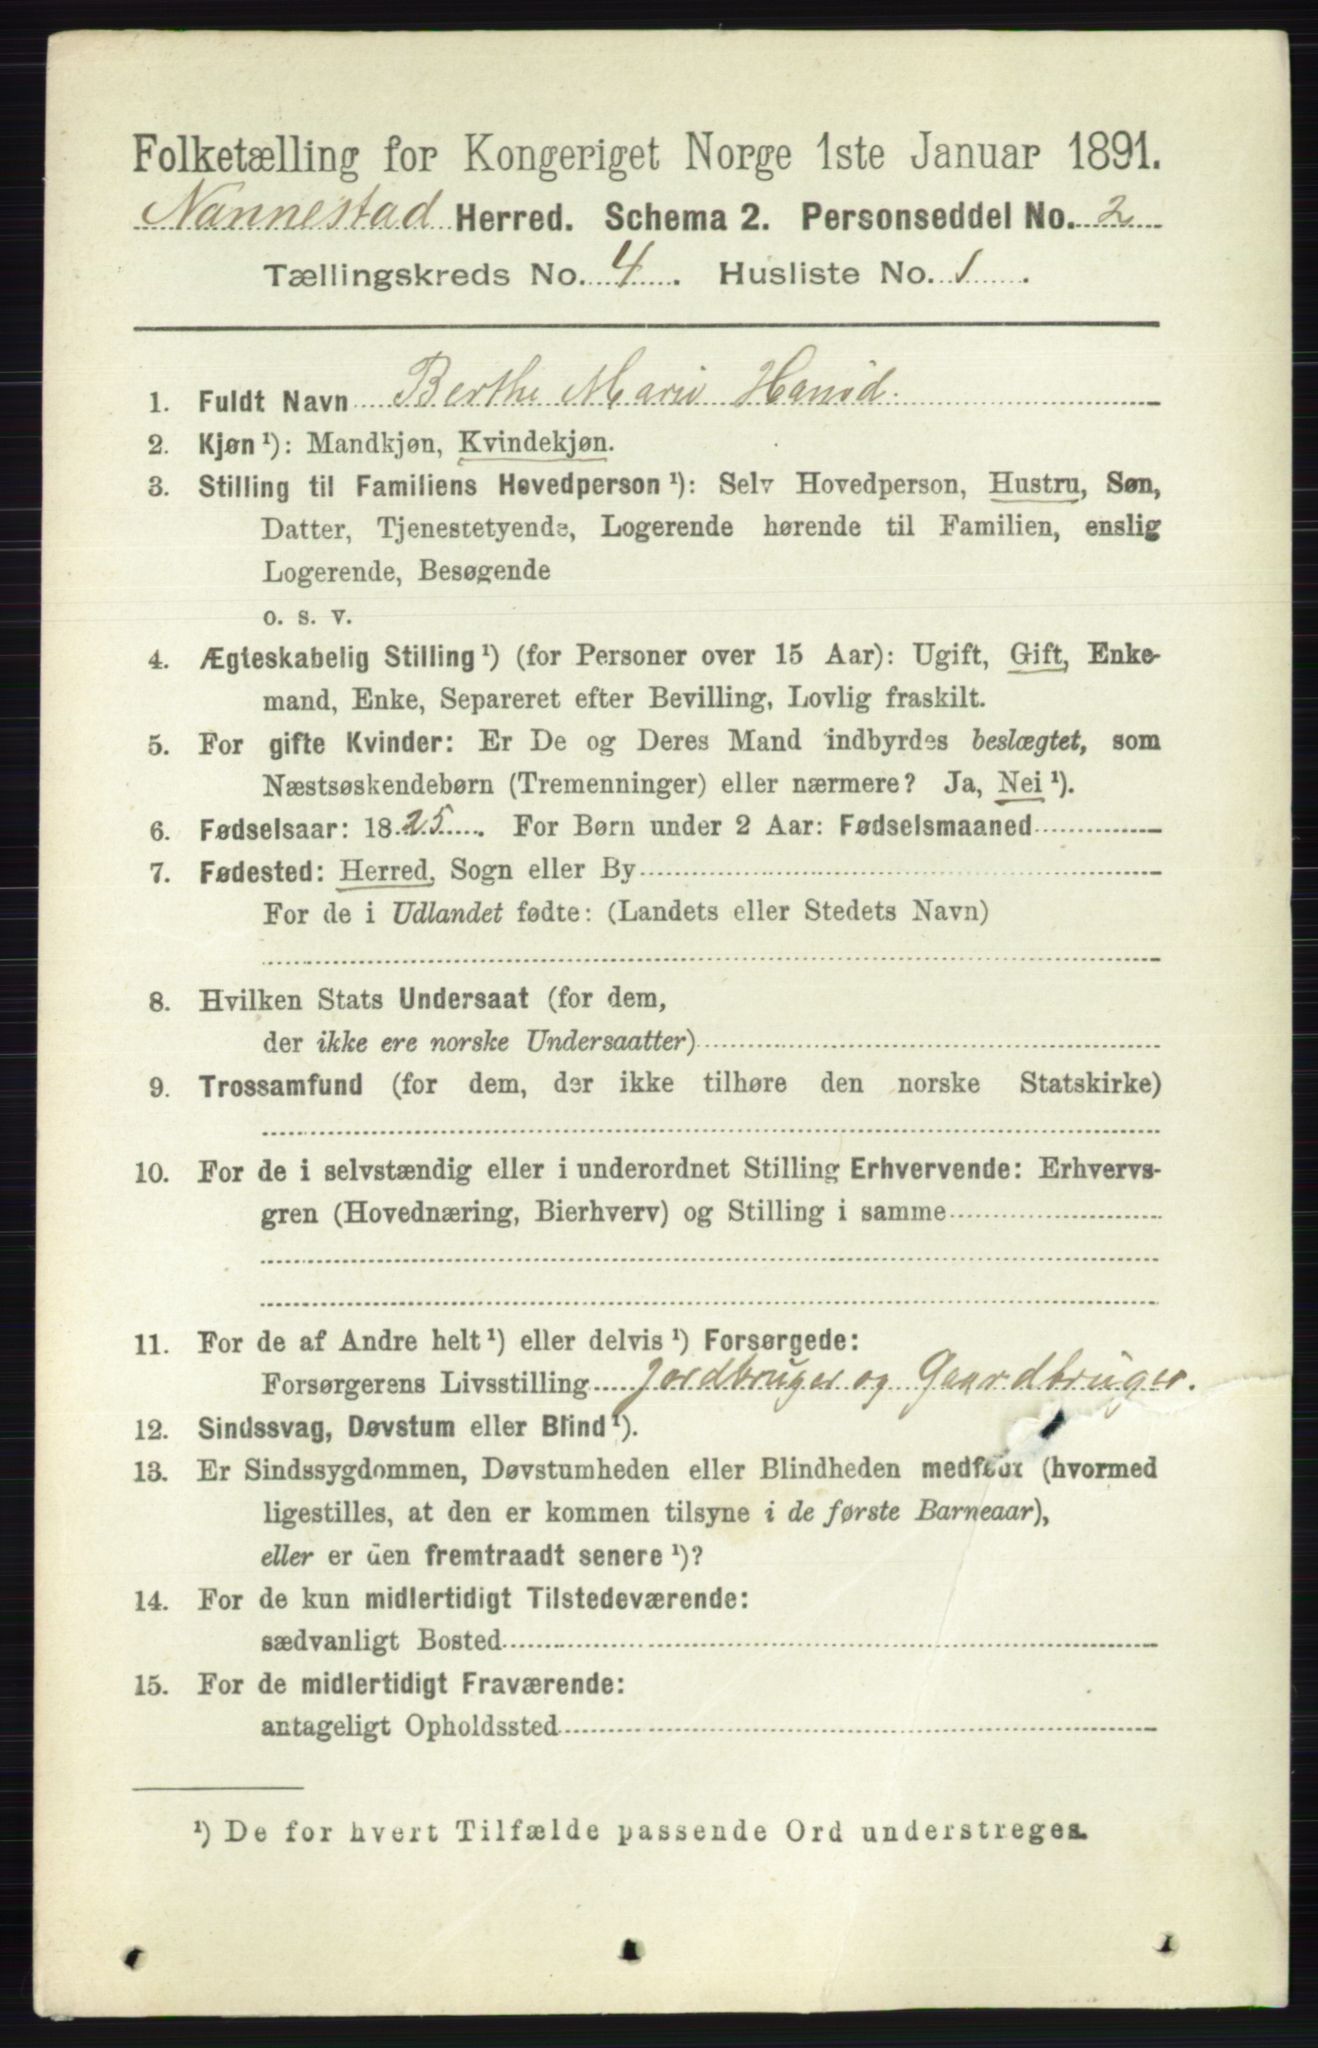 Folketælling for Kongeriget Norge 1ste Januar 1891.
Nannestad Herred. Schema 2. Personseddel No. 2
Tællingskreds No. 4. Husliste No. 1.
1. Fuldt Navn Berthe Marie
2. Kjøn¹): Mandkjøn, Kvindekjøn.
3. Stilling til Familiens Hovedperson¹): Selv Hovedperson, Hustru, Søn,
Datter, Tjenestetyende, Logerende hørende til Familien, enslig
Logerende, Besøgende
o. s. v.
4. Ægteskabelig Stilling¹) (for Personer over 15 Aar): Ugift, Gift, Enke-
mand, Enke, Separeret efter Bevilling, Lovlig fraskilt.
5. For gifte Kvinder: Er De og Deres Mand indbyrdes beslægtet, som
Næstsøskendebørn (Tremenninger) eller nærmere? Ja, Nei¹).
6. Fødselsaar: 1825. For Børn under 2 Aar: Fødselsmaaned
7. Fødested: Herred, Sogn eller By
For de i Udlandet fødte: (Landets eller Stedets Navn)
8. Hvilken Stats Undersaat (for dem,
der ikke ere norske Undersaatter)
9. Trossamfund (for dem, der ikke tilhøre den norske Statskirke)
10. For de i selvstændig eller i underordnet Stilling Erhvervende: Erhvervs-
gren (Hovednæring, Bierhverv) og Stilling i samme
11. For de af Andre helt¹) eller delvis¹) Forsørgede:
Forsørgerens Livsstilling Jordbruger og Gaardbruger.
12. Sindssvag, Døvstum eller Blind¹).
13. Er Sindssygdommen, Døvstumheden eller Blindheden medfødt (hvormed
ligestilles, at den er kommen tilsyne i de første Barneaar),
eller er den fremtraadt senere¹)?
14. For de kun midlertidigt Tilstedeværende:
sædvanligt Bosted
15. For de midlertidigt Fraværende:
antageligt Opholdssted
¹) De for hvert Tilfælde passende Ord understreges.